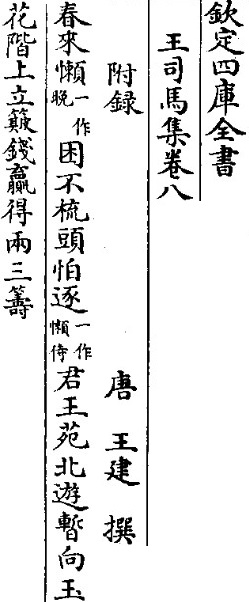 欽定四庫全書
王司馬集卷八
附録
唐 王建 撰
春來懶一作晩困不梳頭怕逐一作懶侍君王苑北遊暫向玉
花階上立簸錢贏得兩三籌